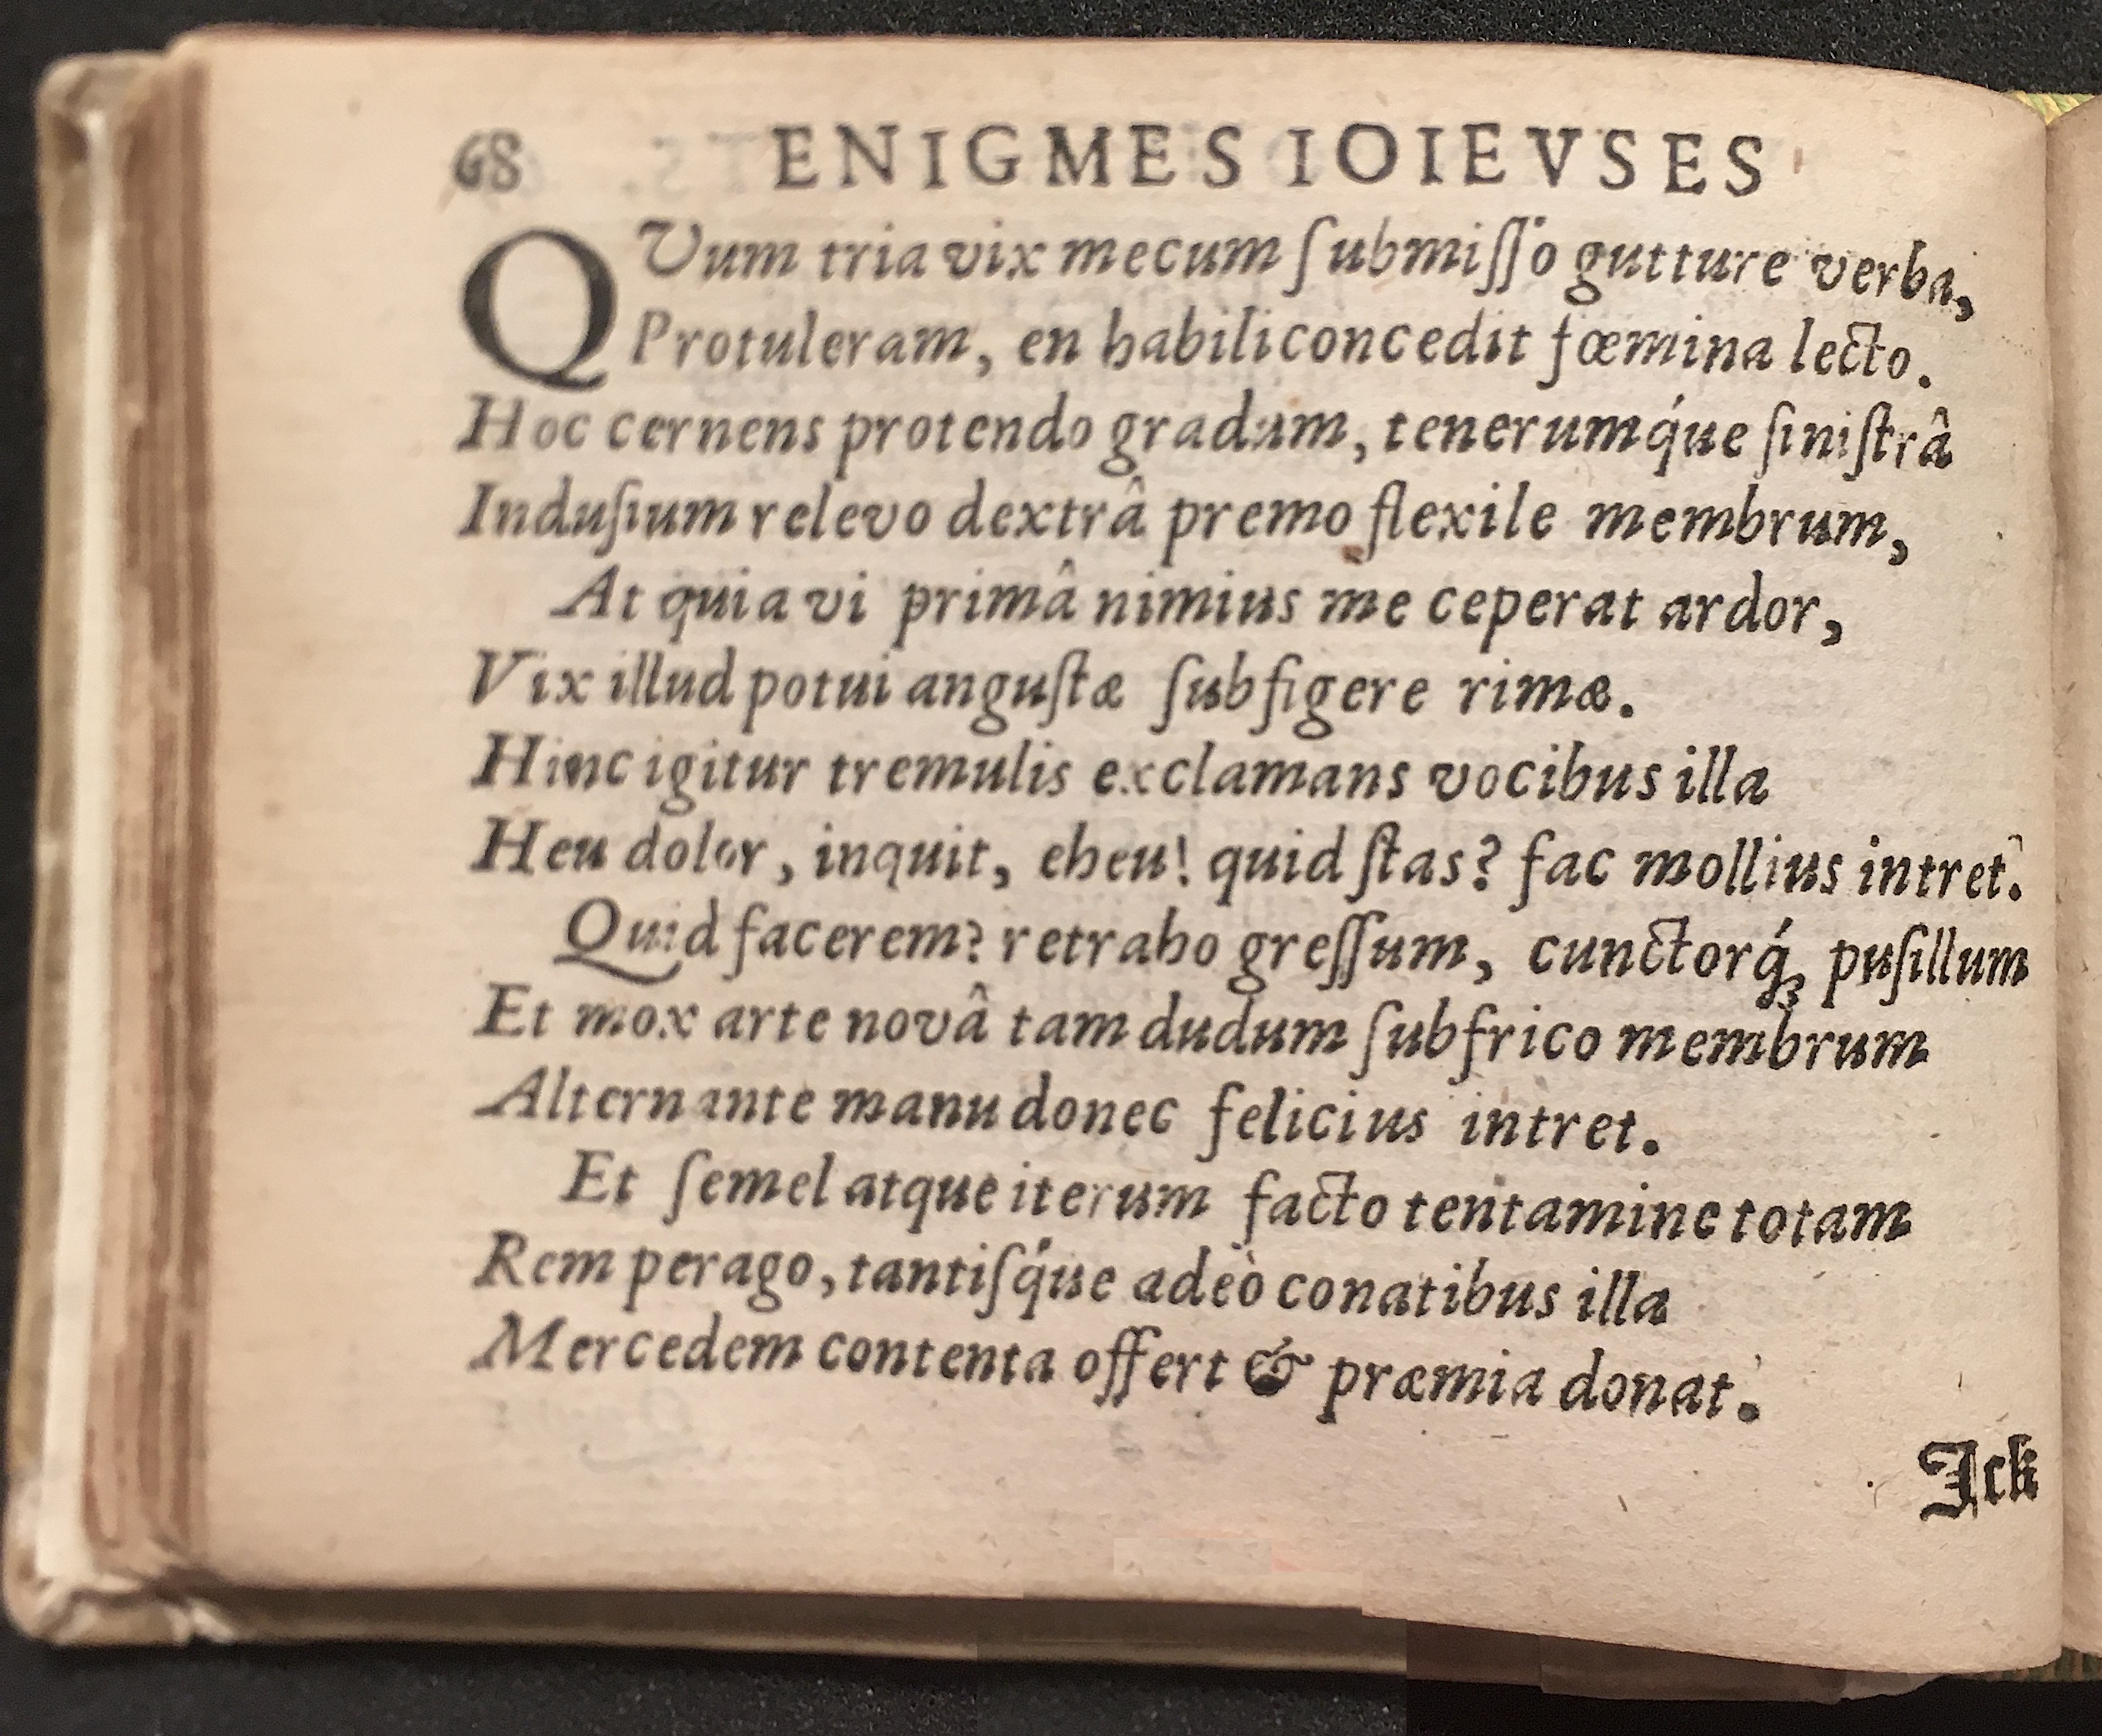 68 ENIGMES IOIEVSES
QVum tria vix mecum ſubmiſſo gutture verba,
Protuleram, en habili concedit fœmina lecto.
Hoc cernens protendo gradum, tenerumq́ue ſiniſtrâ
Induſium relevo dextrâ premo flexile membrum,
At quia vi primâ nimius me ceperat ardor,
Vix illud potui anguſtæ ſubfigere rimæ.
Hinc igitur tremulis exclamans vocibus illa
Heu dolor, inquit, eheu! quid ſtas? fac mollius intret.
Quid facerem? retraho greſſum, cunctorq́ꝫ puſillum
Et mox arte novâ tam dudum ſubfrico membrum
Alternante manu donec felicius intret.
Et ſemel atque iterum facto tentamine totam
Rem perago, tantiſq́ue adeò conatibus illa
Mercedem contenta offert & præmia donat.
Ick